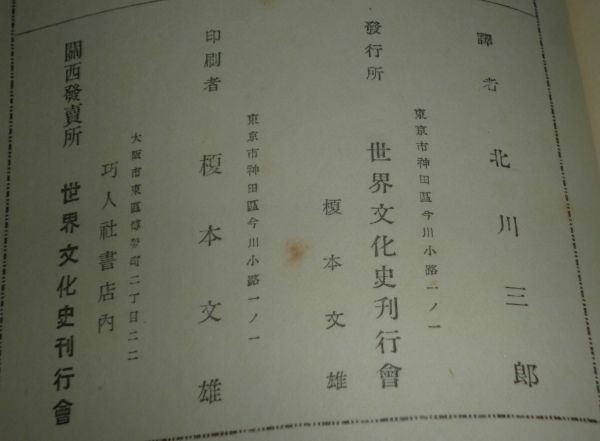 譯者 北川三郎
東京市神田區今川小路一ノ一
發行所 世界文化史刊行會
榎本文雄
東京市神田區今川小路一ノ一
印刷者 榎本文雄
大阪市東區博勞町二丁目二二
巧人社書店內
關西發賣所 世界文化史刊行會